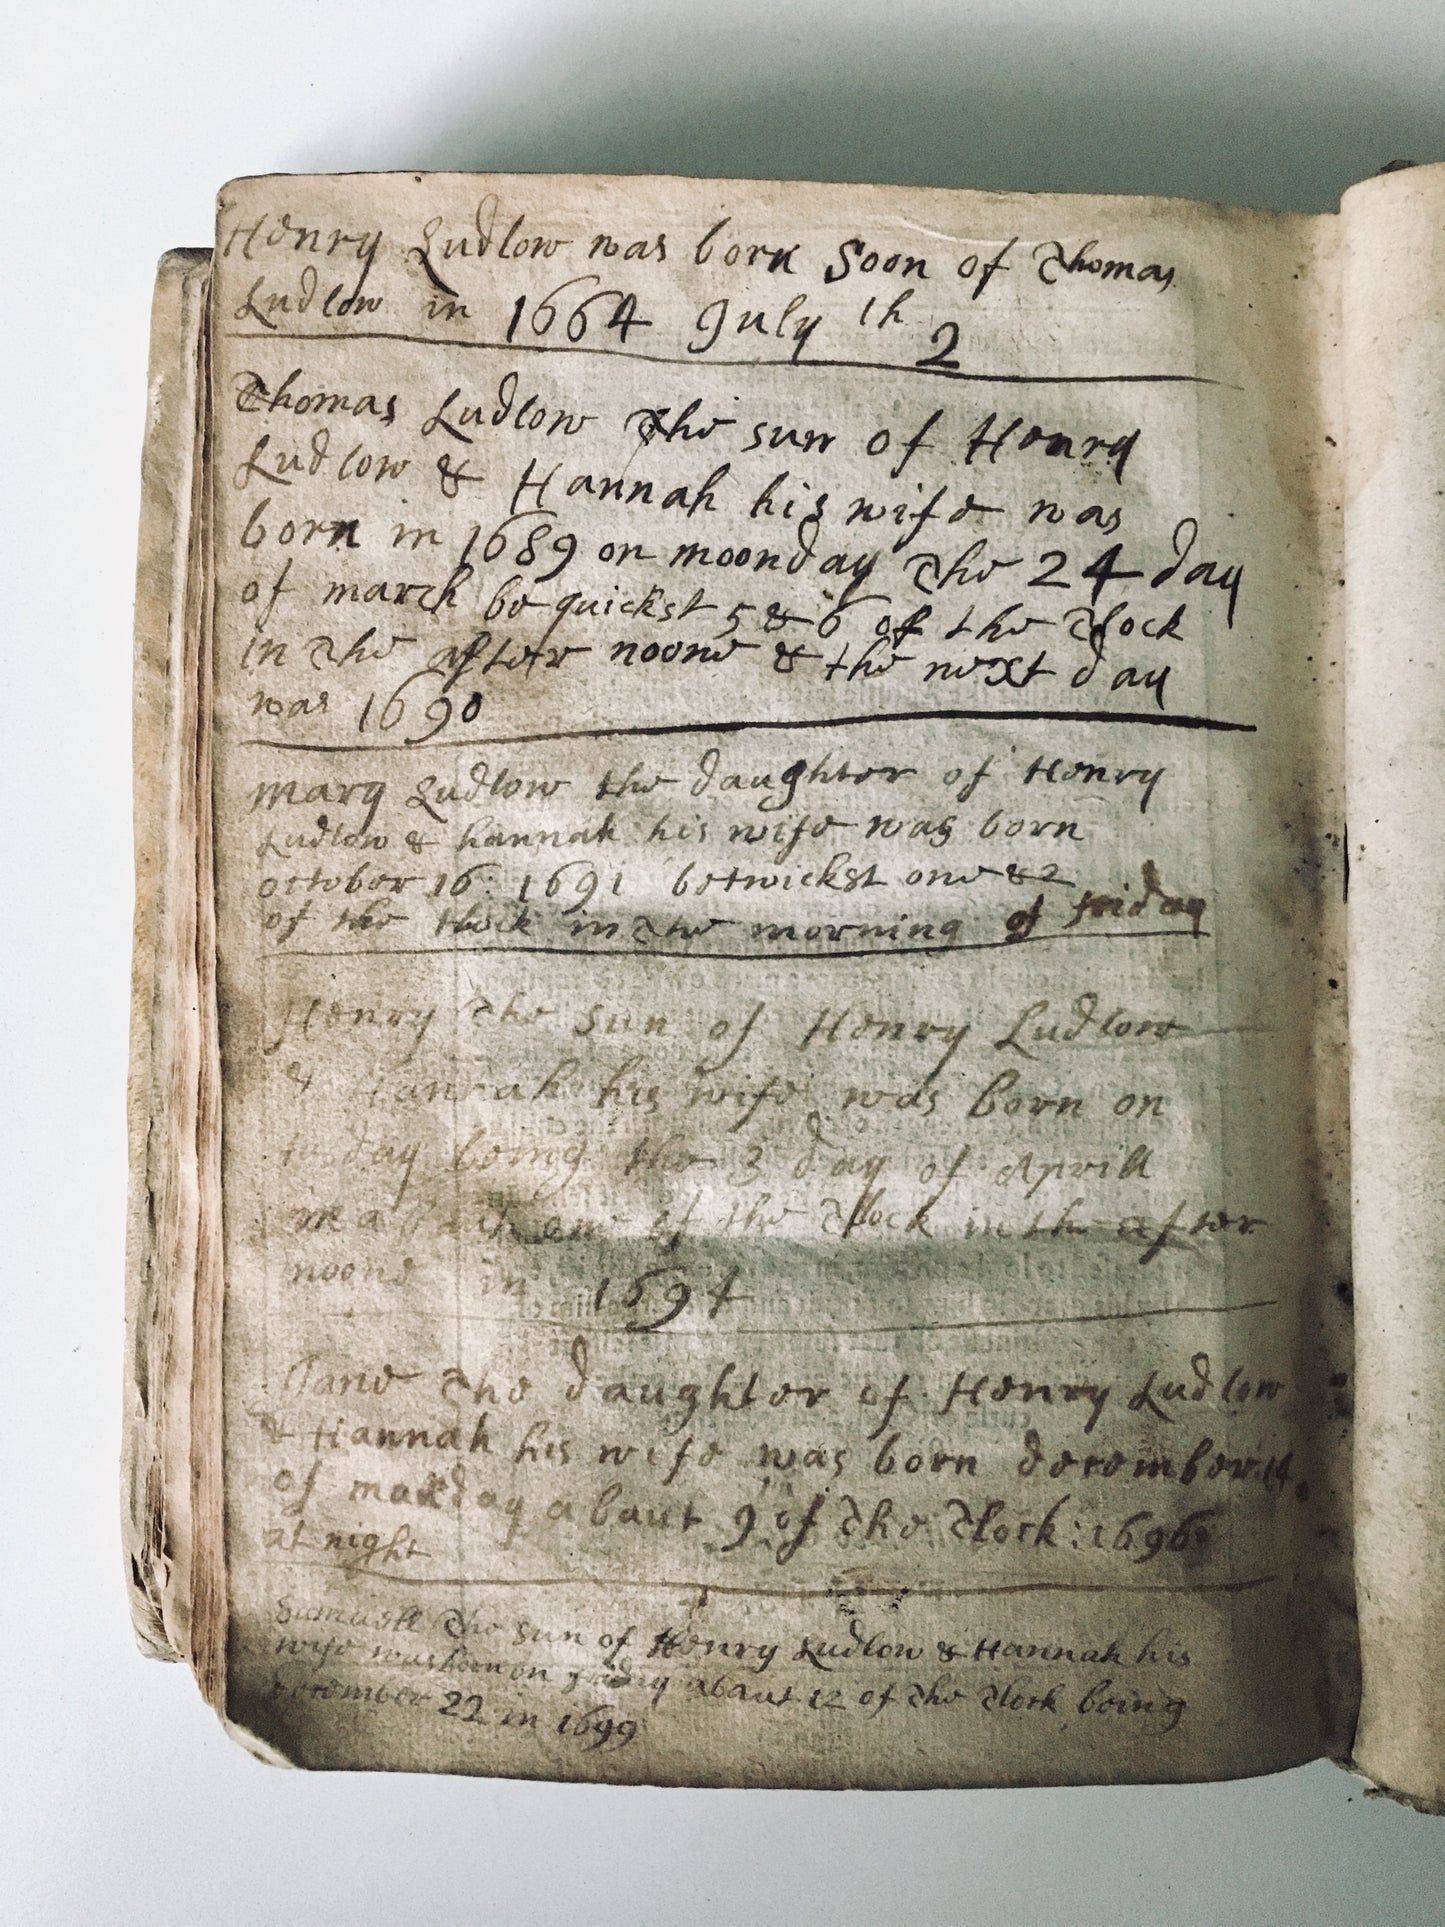 Henry Ludlow was born Soon of Thomas
Ludlow in 1664 July th 2
Thomas Ludlow The sun of Henry
Ludlow & Hannah his wife was
born in 1689 on moonday The 24 day
of march be quickst 5 & 6 of the Clock
in The after noone & the next day
was 1690
Mary Ludlow the daughter of Henry
Ludlow & hannah his wife was born
october 16: 1691 betwickst one & 2
of the Clock in The morning of friday
Henry The Sun of Henry Ludlow
& Hannah his wife was born on
tusday being the 3 day of Aprill
one of the Clock in the after
noone in 1694
Jane The daughter of Henry Ludlow
& Hannah his wife was born december 14
of monday abaut 9 of The Clock: 1696
at night
Samuell The sun of Henry Ludlow & Hannah his
wife was born on friday abaut 12 of The Clock being
december 22 in 1699